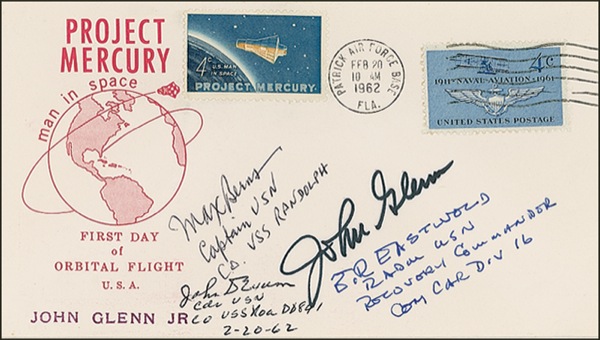 PROJECT
MERCURY
man in space
FIRST DAY
of
ORBITAL FLIGHT
U.S.A.
JOHN GLENN JR
4¢ U.S. MAN
IN SPACE
PROJECT MERCURY
PATRICK AIR FORCE BASE
FEB 20
10 AM
1962
FLA.
4¢
1911-NAVAL·AVIATION-1961
UNITED STATES POSTAGE
Max
Captain USN
CO. USS RANDOLPH
John Glenn
E.R. EASTWOLD
RADM USN
RECOVERY COMMANDER
COM CAR DIV 16
John
Cdr USN
CO USS Noa DD841
2-20-62